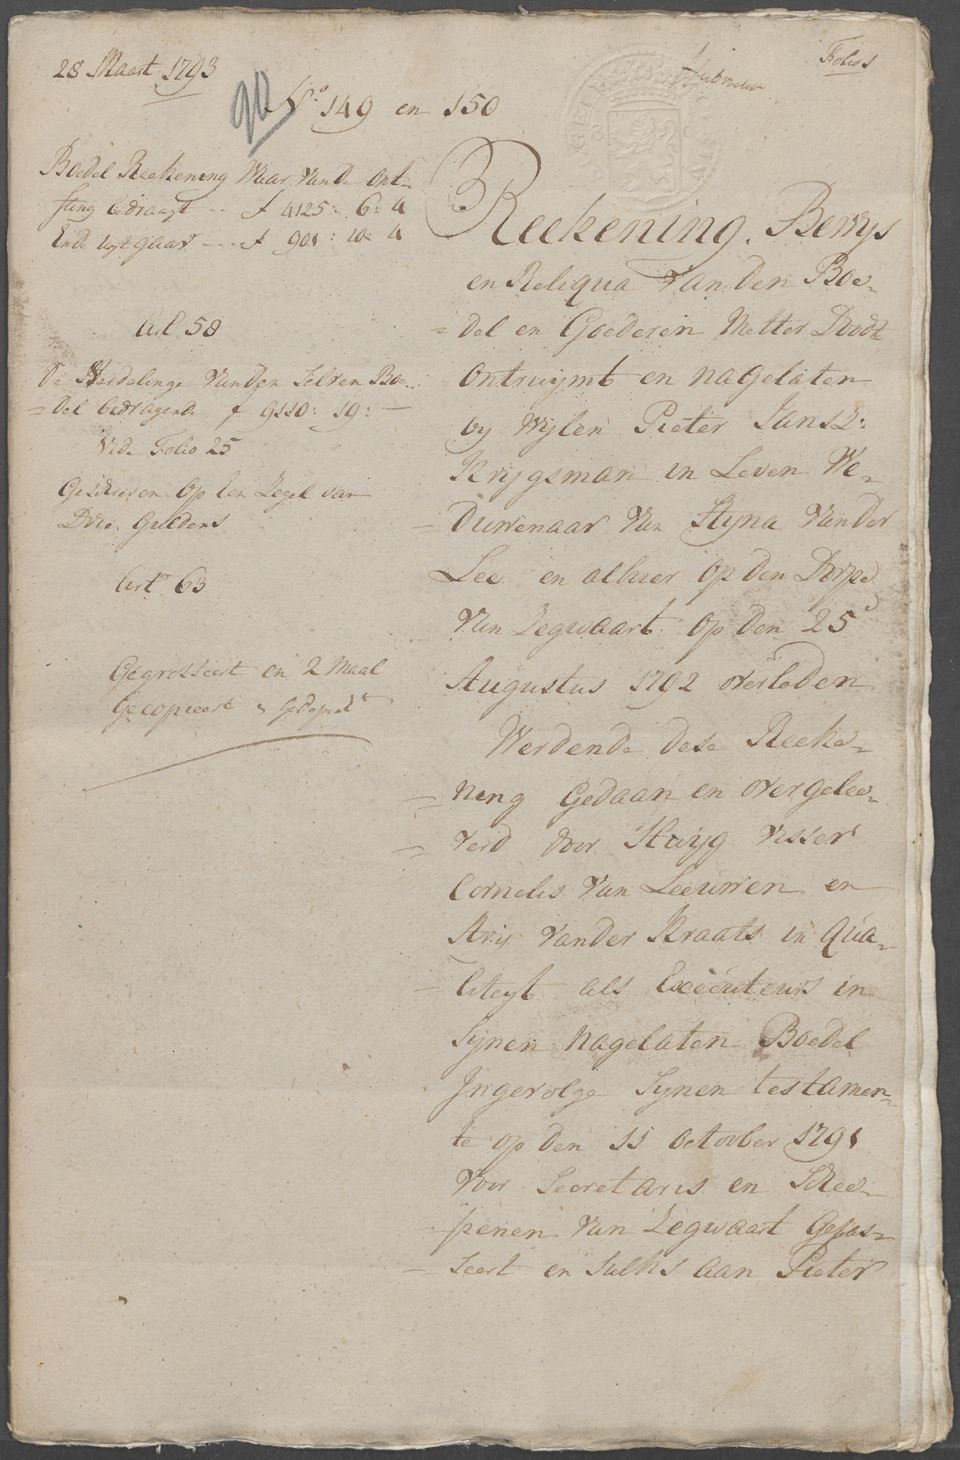 28 Maart 1793
Folio 1
No 149 en 150
Boedel Reekening Waar van de ont-
fang bedraagt -- f 4125: 6: 4
Ende legt gaar --- f 901: 10: 4
Art 58
De Verdelinge van den Selven Boe-
=del bedragende f 9110: 19: -
Vide Folio 25
Geschreven op Een Zegel van
Drie Guldens
Art 63
Gegrosseert en 2 Maal
Gecopieert
Reekening, Bewys
en Reliqua van den Boe-
=del en Goederen Metter Doodt
ontruymt en nagelaten
by Wylen Pieter Jansz:
Krygsman in Leven We-
=duwenaar van Styna vander
Lee en alhier op den Dorpe
van Zegwaart op den 25e
Augustus 1792 overleden
Werdende dese Reeke=
=ning Gedaan en overgelee=
=verd door Huyg Visser
Cornelis van Leeuwen en
Ary vander Kraats in Qua=
-liteyt als Executeurs in
Synen nagelaten Boedel
Ingevolge Synen testamen=
te op den 11 october 1791
voor Secretaris en Schee-
-penen van Zegwaart Gepas=
-seert en sulks aan Pieter